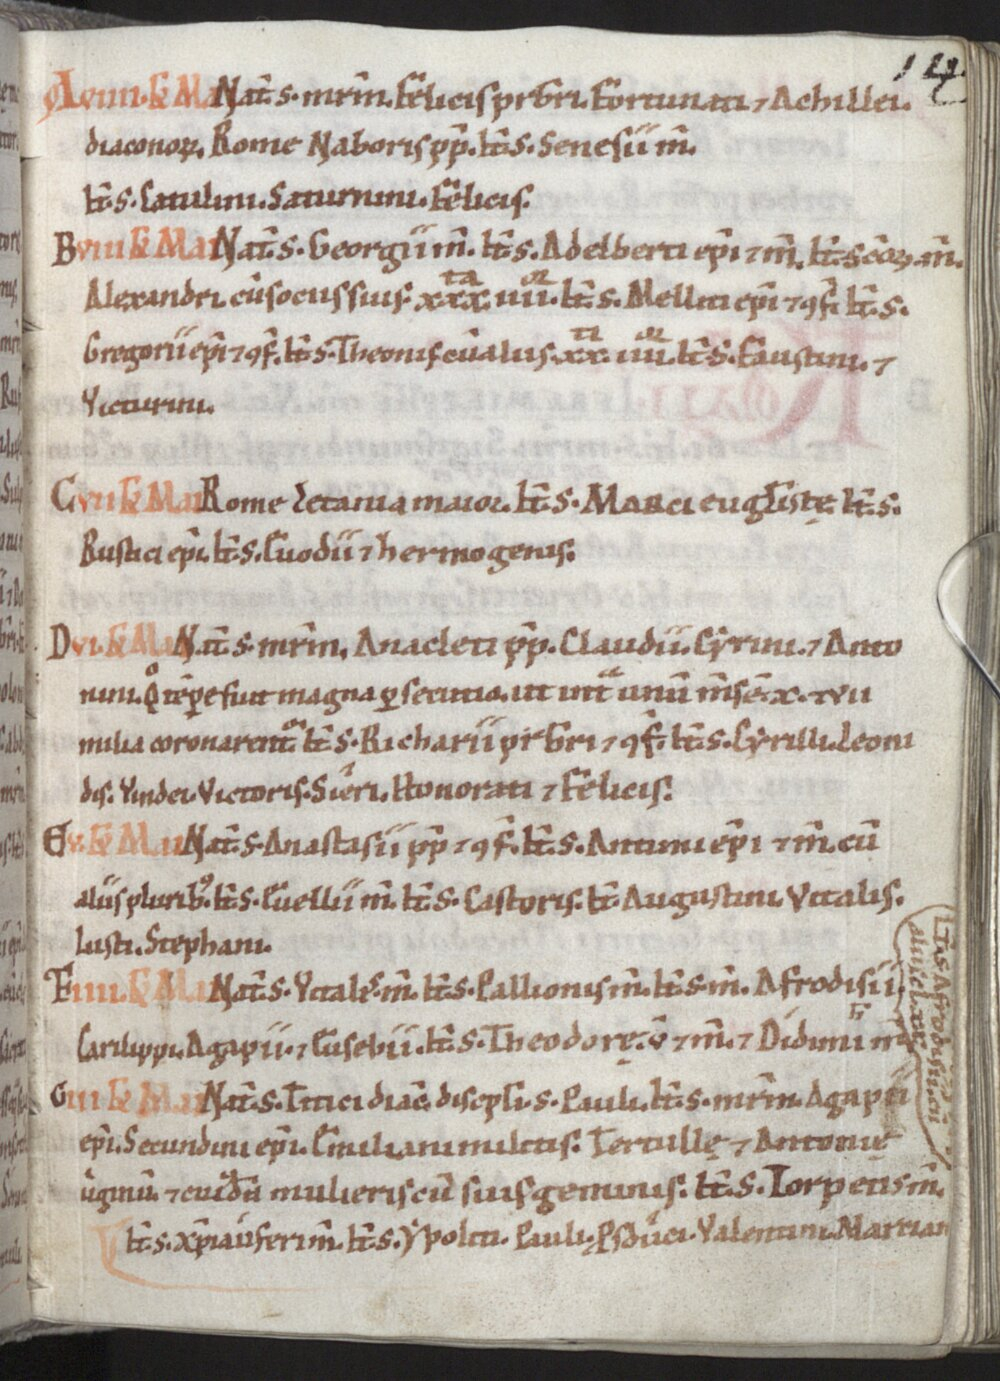 A viiii. k̄ Mai Nat̄. s. mr̄m. Felicis pr̄bri. Fortunati ⁊ Achillei.
diaconoꝝ. Rome Naboris pp̄. It̄. s. Senesii m̄.
It̄. s. Catulini. Saturnini. Felicis.
B viii k̄ Mai Nat̄. s. Georgii m̄. It̄. s. Adelberti ep̄i ⁊ m̄. It̄. s. m̄.
Alexandri. cū sociis suis xxx ta iiii or. It̄. s. Melliti ep̄i ⁊ ꝯf. It̄. s.
Gregorii ep̄i ⁊ ꝯf. It̄. s. Theonis cū aliis. xx ti iiii or. It̄. s. Faustini. ⁊
Victurini.
C vii k̄ Mai Rome letania maior. It̄. s. Marci euḡliste̜. It̄. s.
Rustici ep̄i. It̄. s. Euodii ⁊ hermogenis.
D vi. k̄ Mai Nat̄. s. mr̄m. Anacleti pp̄. Claudii. Cyrini. ⁊ Anto
nini. q̊ tēpe fuit magna ꝑsecutio. ut int̄ unū m̄sē. x. ⁊ vii
milia coronarent̄. It̄. s. Richarii pr̄bri ⁊ ꝯf. It̄. s. Cyrilli. Leoni
dis. Vindei. Victoris. Honorati ⁊ Felicis.
E v. k̄ Mai Nat̄. s. Anastasii pp̄ ⁊ ꝯf. It̄. s. Antimi ep̄i ⁊ m̄. cū
aliis plurib⁹. It̄. s. Euellii m̄. It̄. s. Castoris. It̄. Augustini. Vitalis.
Iusti. Stephani.
F iiii. k̄ Mai Nat̄. s. Vitalis m̄. It̄. s. Pallionis m̄. It̄. s. m̄. Afrodisii.
Carilippi. Agapii. ⁊ Eusebii. It̄. s. Theodore̜. v̄ ⁊ m̄. ⁊ Didimi m̄
It̄. s. Afrodisii. cū
aliis clxx.
G iii k̄ Mai Nat̄. s. Titici diac̄. discip̄li. s. Pauli. It̄. s. mr̄m. Agapii
ep̄i. Secundini ep̄i. Emiliani militis. Tertulle̜ ⁊ Antonie̜
v̄ginū. ⁊ cuiꝰdā mulieris cū suis geminis. It̄. s. Torpetis m̄.
It̄. s. xp̄iauferi m̄. It̄. s. Ypoliti. Pauli. Valentini. Martian